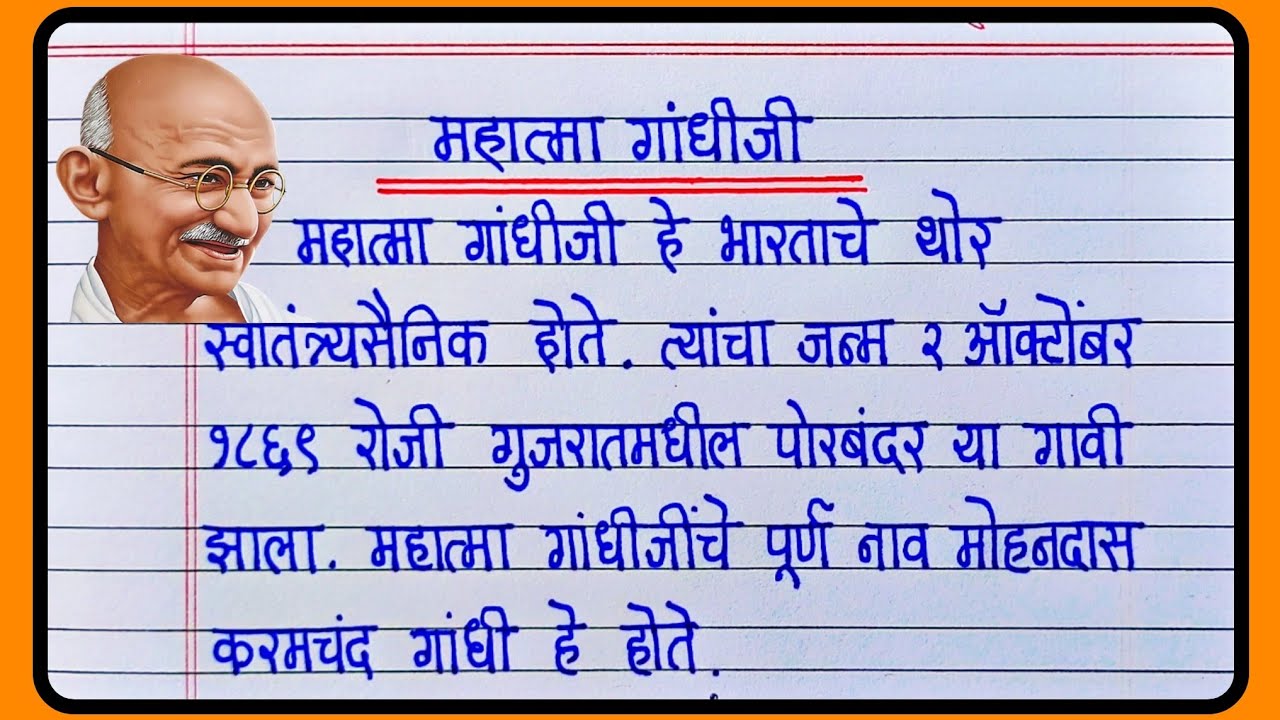 महात्मा गांधीजी
महात्मा गांधीजी हे भारताचे थोर
स्वातंत्र्यसैनिक होते. त्यांचा जन्म २ ऑक्टोंबर
१८६९ रोजी गुजरातमधील पोरबंदर या गावी
झाला. महात्मा गांधीजींचे पूर्ण नाव मोहनदास
करमचंद गांधी हे होते.